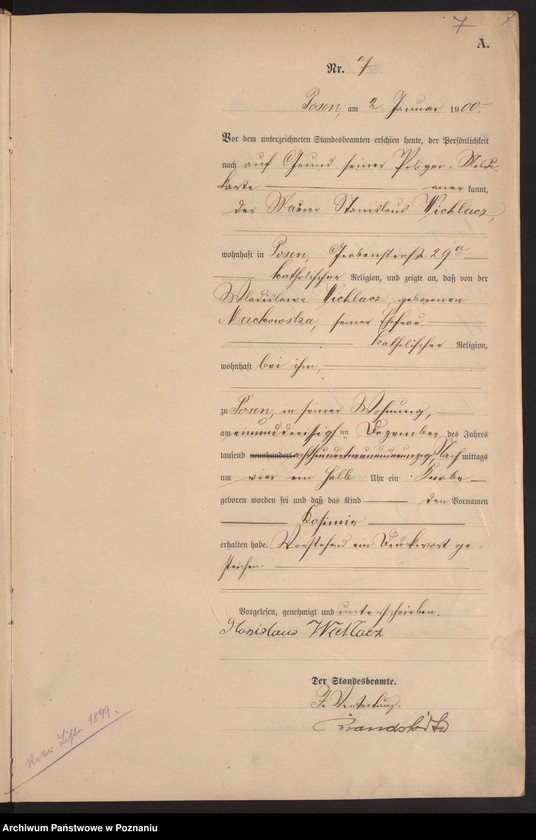 7
A.
Nr. 7
Posen, am 2 Januar 1900.
Vor dem unterzeichneten Standesbeamten erschien heute, der Persönlichkeit
nach auf Grund seiner Polizei-Melde-
karte anerkannt,
der Maurer Stanislaus Wichlacz,
wohnhaft in Posen, Gerberstraße 29a
katholischer Religion, und zeigte an, daß von der
Wladislawa Wichlacz, geborenen
Mackowska, seiner Ehefrau,
katholischer Religion,
wohnhaft bei ihm,
zu Posen, in seiner Wohnung,
am einunddreißigsten Dezember des Jahres
tausend neunhundert achthundertneunundneunzig, Nachmittags
um vier ein halb Uhr ein Knabe
geboren worden sei und daß das Kind den Vornamen
Kasimir
erhalten habe. Vorstehend ein Druckwort ge-
strichen.
Vorgelesen, genehmigt und unterschrieben.
Stanislaus Wichlacz
Der Standesbeamte.
In Vertretung.
1899.
Archiwum Państwowe w Poznaniu